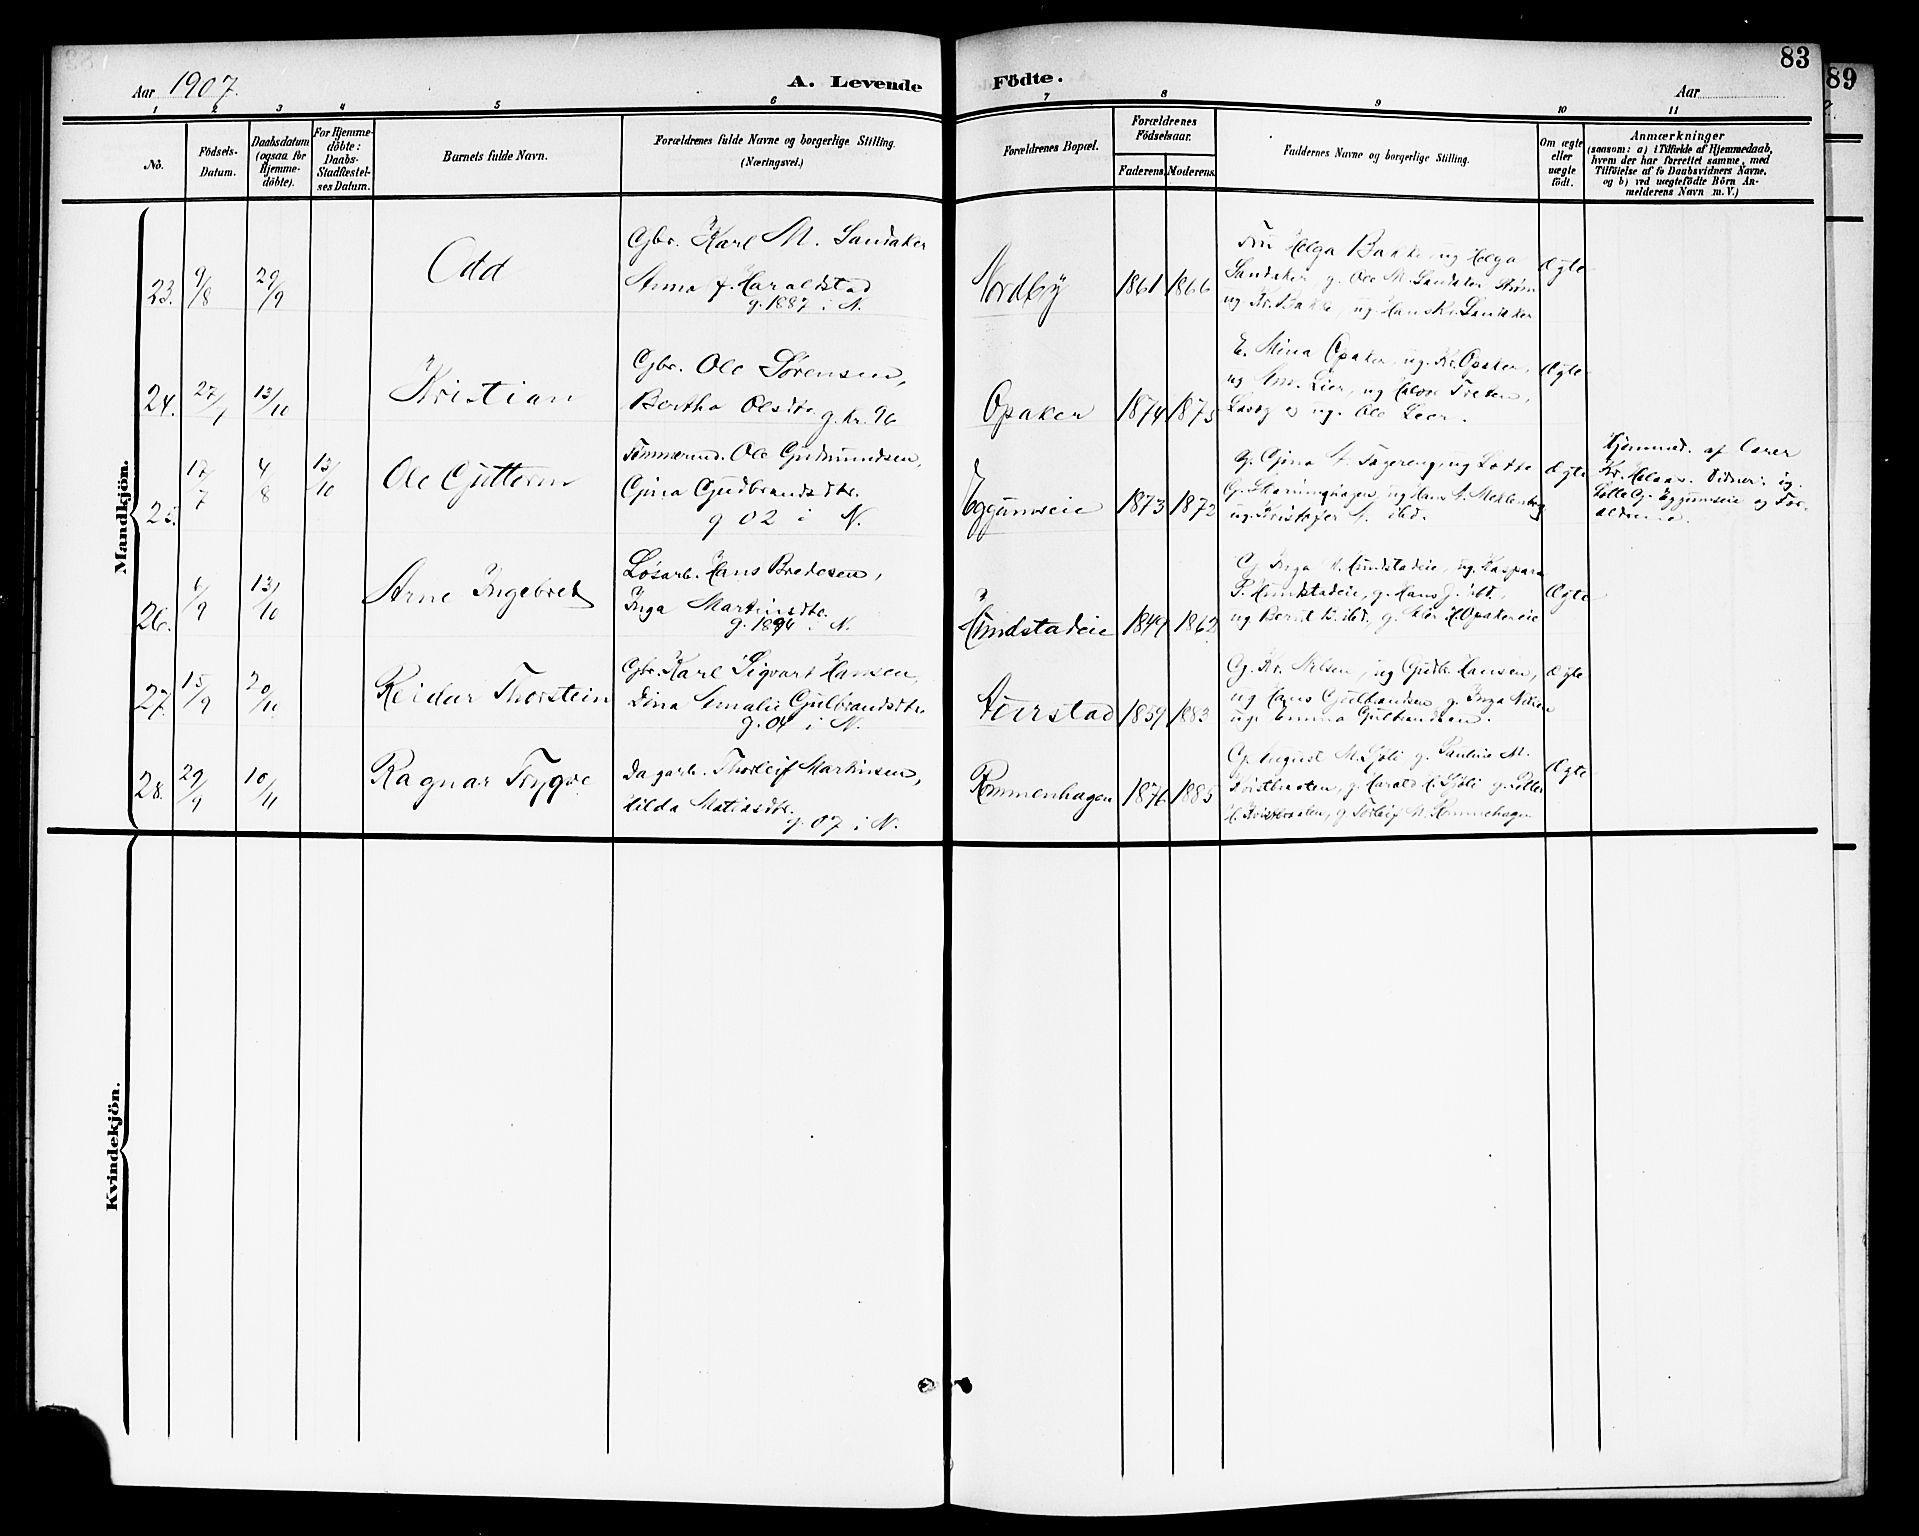 83
89
Aar 1907.
A. Levende Födte.
Aar
1 2 3 4 5 6 7 8 9 10 11
No.
Födsels-
Datum.
Daabsdatum
(ogsaa for
Hjemme-
döbte).
For Hjemme-
döbte:
Daabs-
Stadfæstel-
ses Datum.
Barnets fulde Navn.
Forældrenes fulde Navne og borgerlige Stilling.
(Næringsvei.)
Forældrenes Bopæl.
Forældrenes
Födselsaar.
Faderens. Moderens.
Faddernes Navne og borgerlige Stilling.
Om ægte
eller
uægte
födt.
Anmærkninger
(saasom: a) i Tilfælde af Hjemmedaab,
hvem der har forrettet samme, med
Tilföielse af to Daabsvidners Navne,
og b) ved uægtefödte Börn An-
melderens Navn m. V.)
Mandkjön.
23. 9/8 29/9
Odd
Gbr. Karl M. Sandaker
Anna f. Haraldstad
g. 1887 i N.
Nordby
1861 1866
Fru Helga Bakke, ug Helga
Sandaker g. Ole M. Sandaker
ug. Kr. Bakke, ug. Hans Kr. Sandaker
Ægte
24. 27/9 13/10
Kristian
Gbr. Ole Sørensen,
Bertha Olsdtr. g. kr. 96
Opaker
1874 1875
E. Mina Opaker, ug. Kr. Opaker,
ug Am. Lier, ug Halvor
ug. Ole Lier.
Ægte
25. 17/7 4/8 13/10
Ole Guttorm
Tømmermd. Ole Gudmundsen,
Gina Gudbrandsdtr.
g 02 i N.
Eggumseie
1873 1872
G. Gina A. Fagereng, ug Lotte
G. Skarninghagen, ug Hans A. Meklenborg
ug. Kristofer A. ibd.
Ægte
Hjemmed. af Lærer
Kr. Melaas. Vidner: ug.
Lotte G. Eggumseie og For-
ældrene.
26. 6/9 13/10
Arne Ingebret
Løsarb. Hans Bredesen,
Inga Martinsdtr.
g. 1894 i N.
Hundstadeie
1849 1862
G. Inga M. Hundstadeie, ug. Kaspara
P. Hundstadeie, g. Hans J. ibd.,
ug Bernt B. ibd., g. H. Opakereie
Ægte
27. 15/9 20/10
Reidar Thorstein
Gbr. Karl Sigvart Hansen,
Dina Amalie Gulbrandsdtr.
g. 04 i N.
1859 1883
G. Kr. Nilsen, ug Gudb. Hansen,
ug Hans Gulbrandsen g. Inga Nilsen
ug. Emma Gulbrandsen.
Ægte
28. 29/9 10/11
Ragnar Trygve
Dagarb. Thorleif Martinsen,
Hilda Matiasdtr.
g. 07 i N.
Rommenhagen
1876 1885
G. August M. Sjøli g. Pauline M.
g. Harald M. Sjøli g.
g. Torleif M. Rommehagen
Ægte
Kvindekjön.